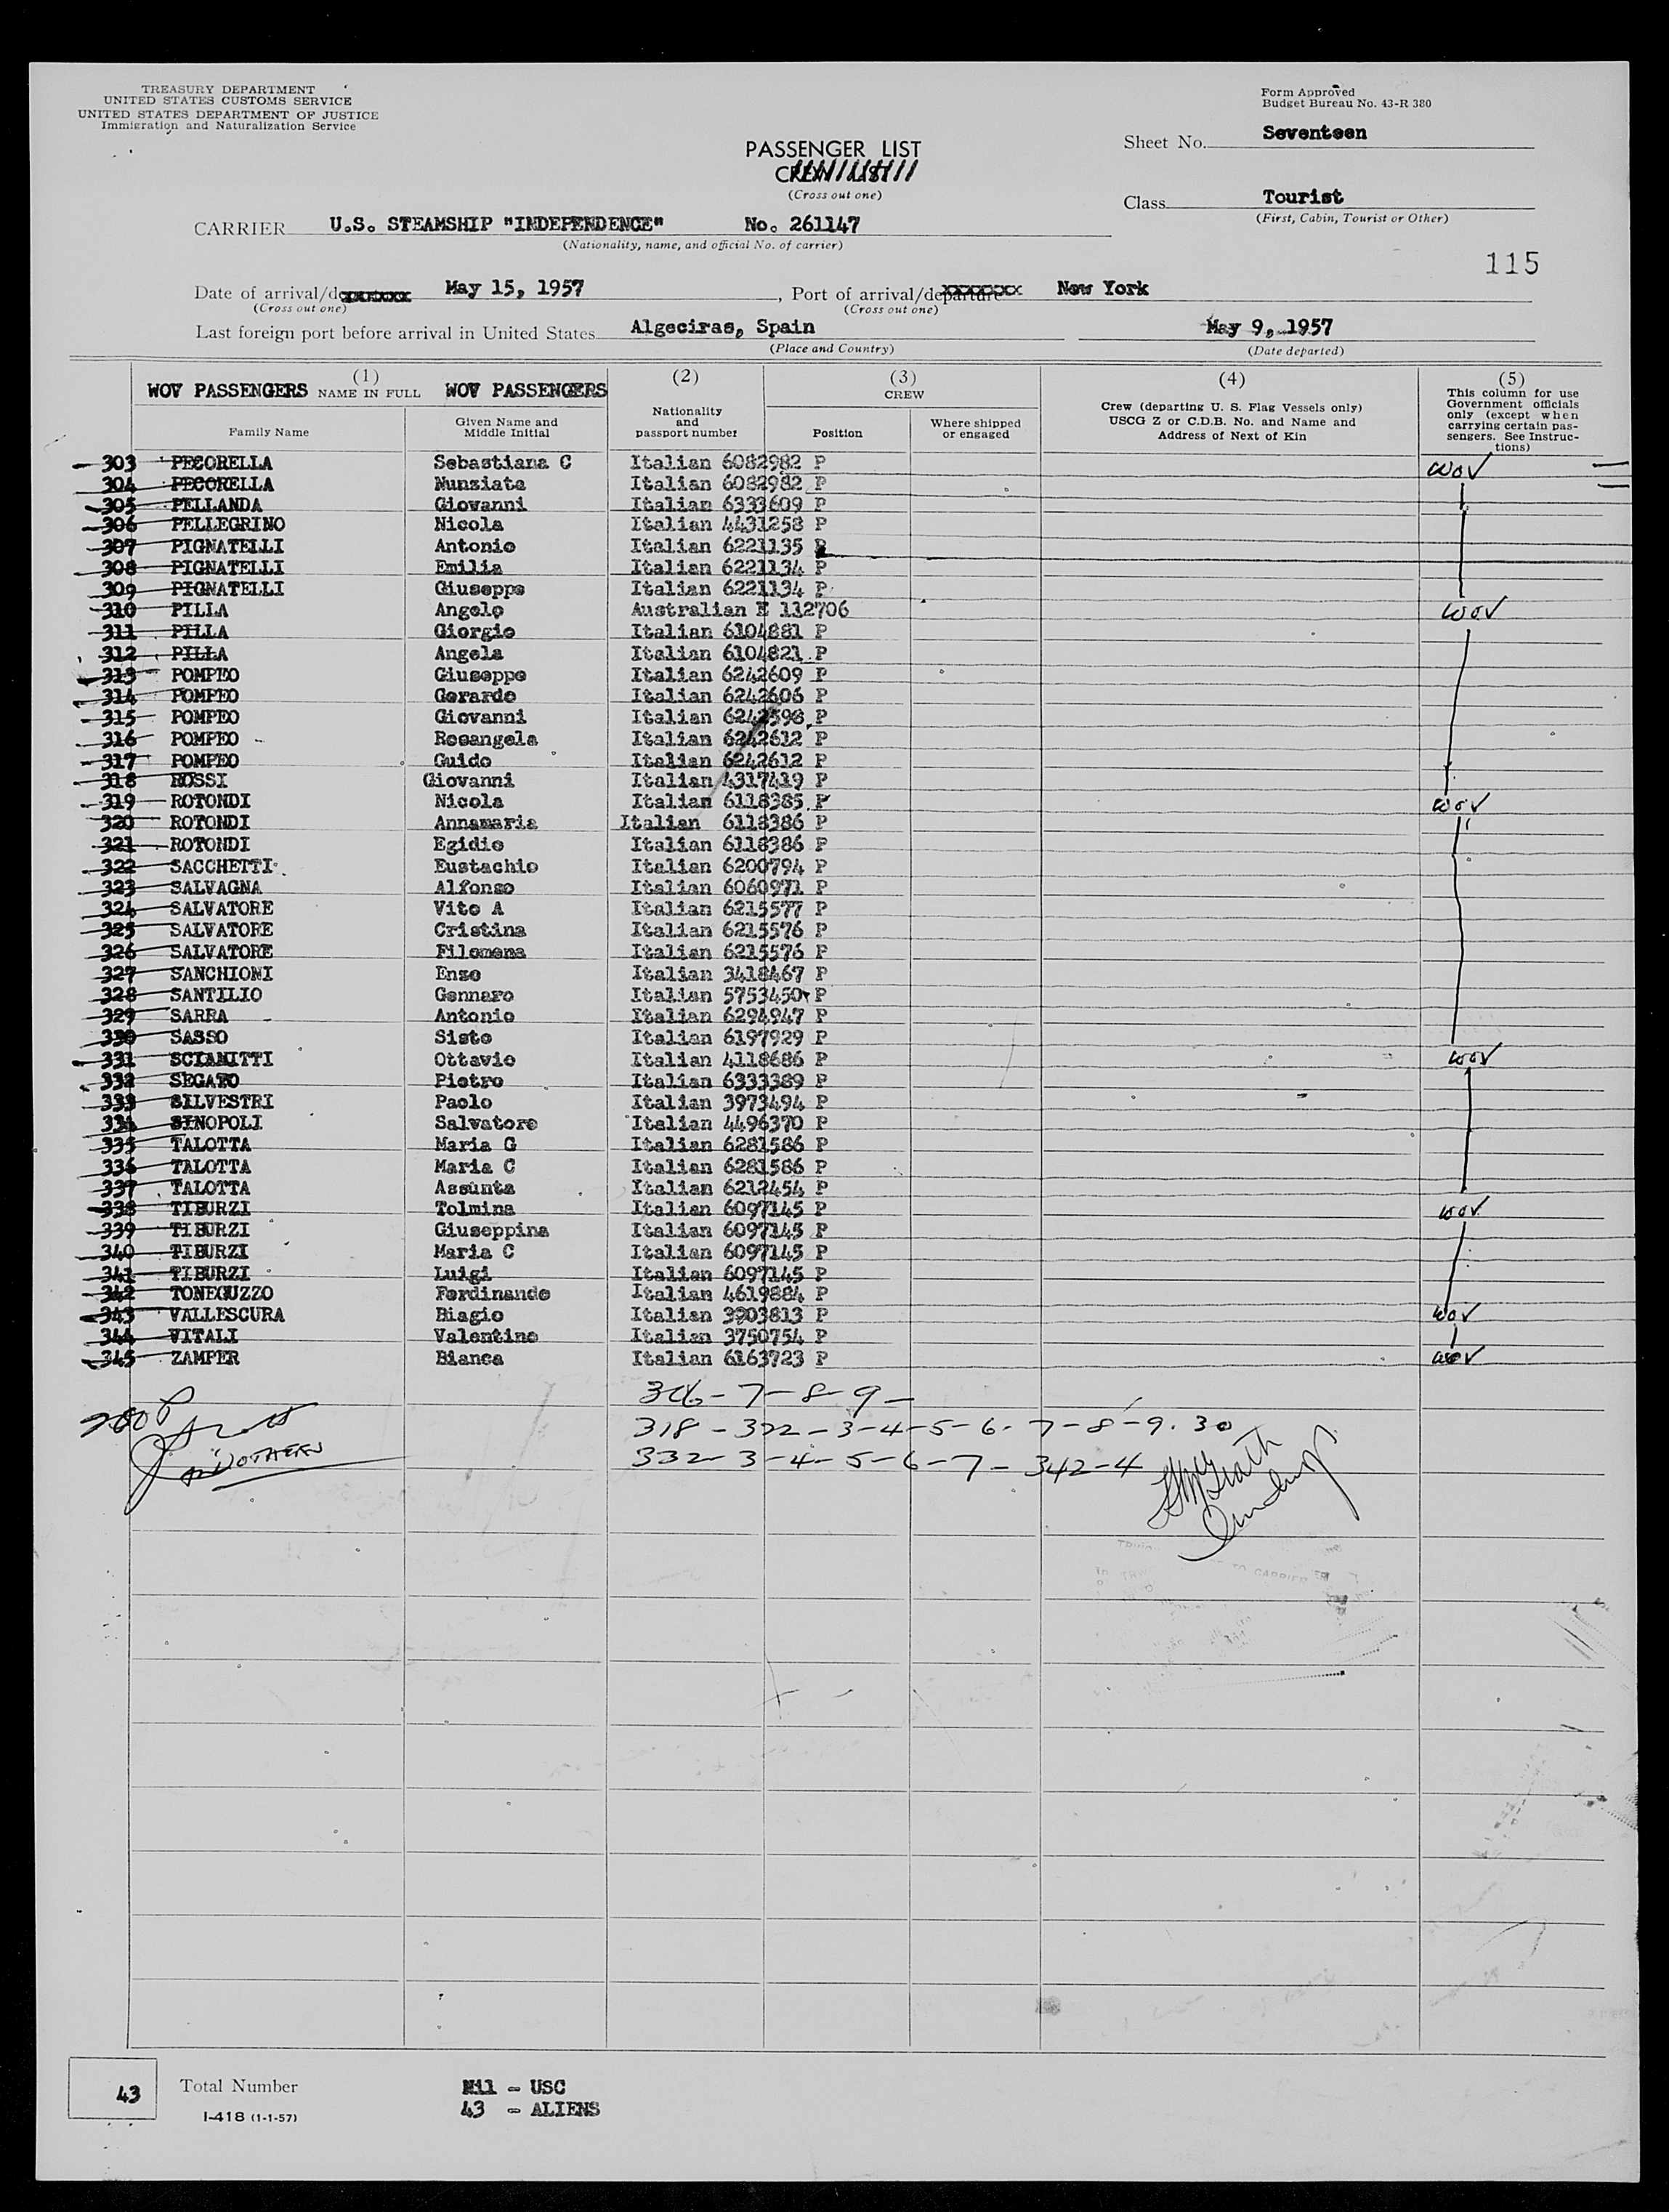 TREASURY DEPARTMENT
UNITED STATES CUSTOMS SERVICE
UNITED STATES DEPARTMENT OF JUSTICE
Immigration and Naturalization Service
Form Approved
Budget Bureau No. 43-R 380
PASSENGER LIST
CREW LIST
(Cross out one)
Sheet No. Seventeen
Class Tourist
(First, Cabin, Tourist or Other)
CARRIER U.S. STEAMSHIP "INDEPENDENCE" No. 261147
(Nationality, name, and official No. of carrier)
115
Date of arrival/d May 15, 1957, Port of arrival/departure New York
(Cross out one) (Cross out one)
Last foreign port before arrival in United States Algeciras, Spain May 9, 1957
(Place and Country) (Date departed)
(1) (2) (3) (4) (5)
WOV PASSENGERS NAME IN FULL WOV PASSENGERS
Family Name
Given Name and Middle Initial
Nationality and passport number
CREW
Position
Where shipped or engaged
Crew (departing U. S. Flag Vessels only)
USCG Z or C.D.B. No. and Name and
Address of Next of Kin
This column for use
Government officials
only (except when
carrying certain pas-
sengers. See Instruc-
tions)
303 PECORELLA Sebastiana C Italian 6082982 P WOV
304 PECORELLA Nunziata Italian 6082982 P
305 PELLANDA Giovanni Italian 6333609 P
306 PELLEGRINO Nicola Italian 4431258 P
307 PIGNATELLI Antonio Italian 6221135 P
308 PIGNATELLI Emilia Italian 6221134 P
309 PIGNATELLI Giuseppe Italian 6221134 P
310 PILLA Angelo Australian E 112706 WOV
311 PILLA Giorgio Italian 6104881 P
312 PILLA Angela Italian 6104821 P
313 POMPEO Giuseppe Italian 6242609 P
314 POMPEO Gerardo Italian 6242606 P
315 POMPEO Giovanni Italian 6242598 P
316 POMPEO Rosangela Italian 6242612 P
317 POMPEO Guido Italian 6242612 P
318 ROSSI Giovanni Italian 4317419 P
319 ROTONDI Nicola Italian 6118385 P WOV
320 ROTONDI Annamaria Italian 6118386 P
321 ROTONDI Egidio Italian 6118386 P
322 SACCHETTI Eustachio Italian 6200794 P
323 SALVAGNA Alfonso Italian 6060971 P
324 SALVATORE Vito A Italian 6215577 P
325 SALVATORE Cristina Italian 6215576 P
326 SALVATORE Filomena Italian 6215576 P
327 SANCHIONI Enzo Italian 3418467 P
328 SANTILIO Gennaro Italian 5753450 P
329 SARRA Antonio Italian 6294947 P
330 SASSO Sisto Italian 6197929 P
331 SCIAMITTI Ottavio Italian 4118686 P WOV
332 SEGATO Pietro Italian 6333389 P
333 SILVESTRI Paolo Italian 3973494 P
334 SINOPOLI Salvatore Italian 4496370 P
335 TALOTTA Maria G Italian 6281586 P
336 TALOTTA Maria C Italian 6281586 P
337 TALOTTA Assunta Italian 6212454 P
338 TIBURZI Tolmina Italian 6097145 P WOV
339 TIBURZI Giuseppina Italian 6097145 P
340 TIBURZI Maria C Italian 6097145 P
341 TIBURZI Luigi Italian 6097145 P
342 TONEGUZZO Ferdinando Italian 4619884 P
343 VALLESCURA Biagio Italian 3903813 P WOV
344 VITALI Valentino Italian 3750754 P
345 ZAMPER Bianca Italian 6163723 P WOV
306-7-8-9-
318-322-3-4-5-6-7-8-9.30
332-3-4-5-6-7-342-4
43 Total Number
I-418 (1-1-57)
Nil - USC
43 - ALIENS